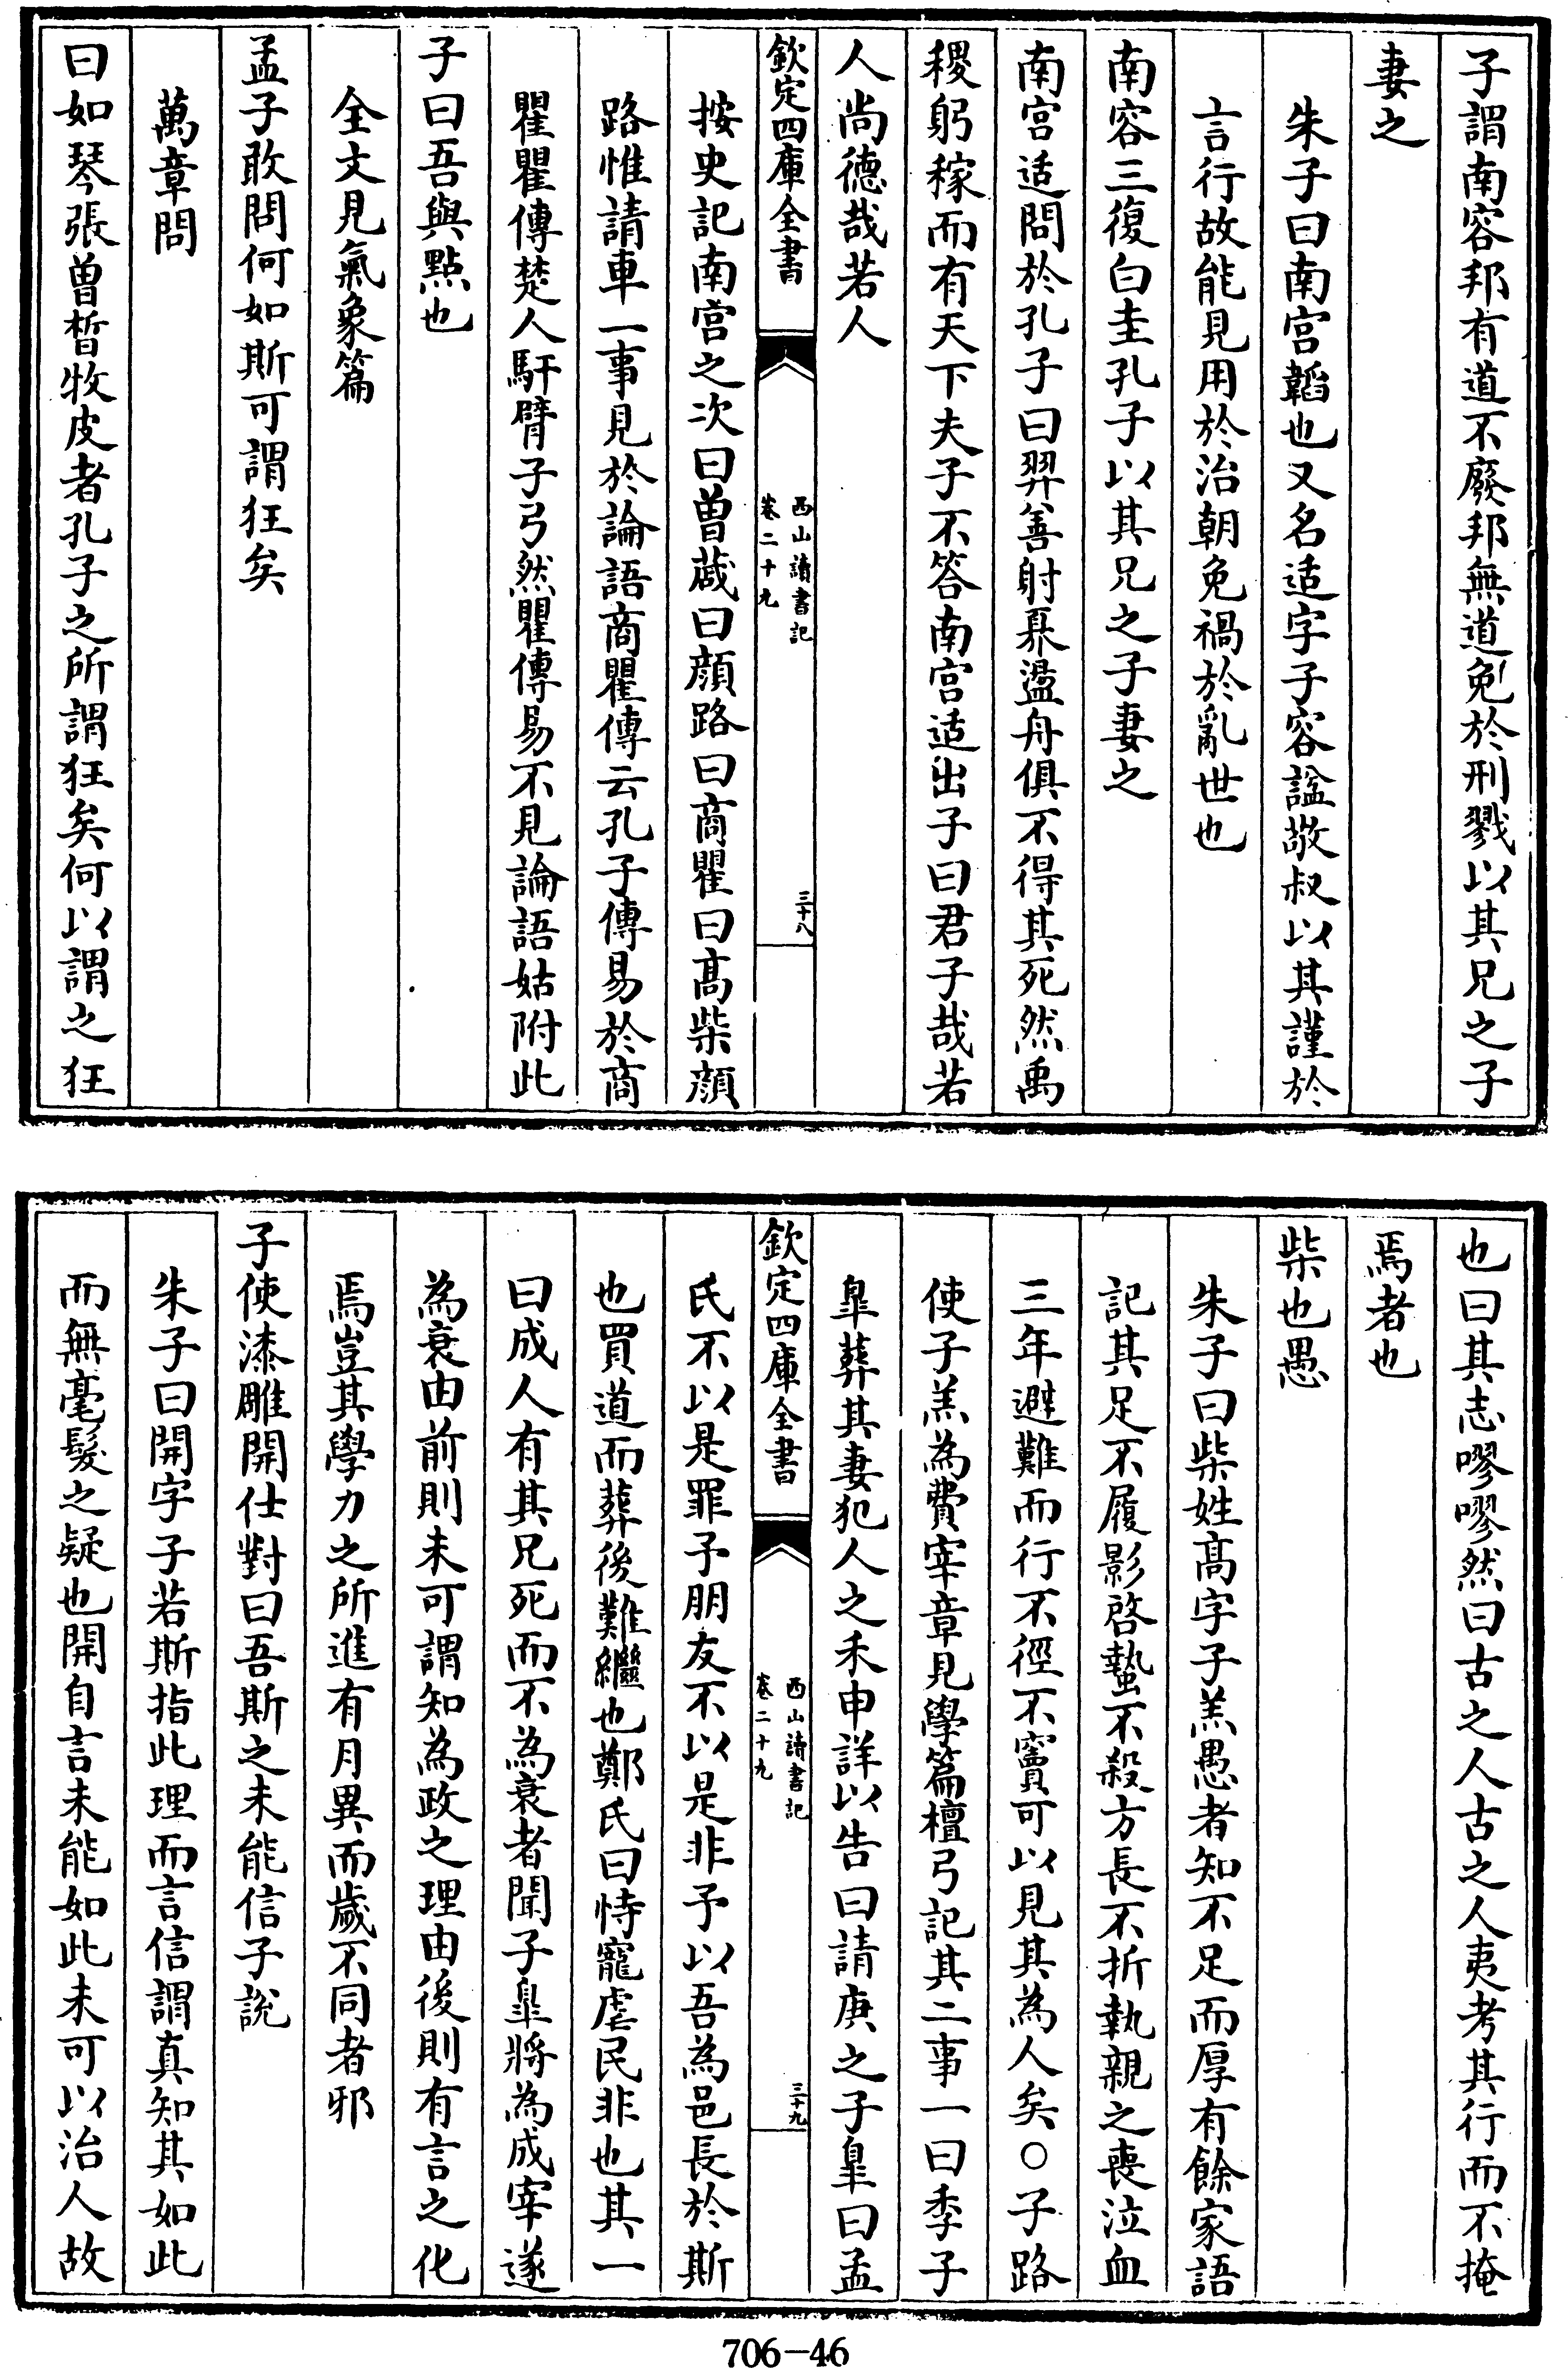 子謂南容邦有道不廢邦無道免於刑戮以其兄之子
妻之
朱子曰南宫韜也又名适字子容諡敬叔以其謹於
言行故能見用於治朝免禍於亂世也
南容三復白圭孔子以其兄之子妻之
南宫适問於孔子曰羿善射奡盪舟俱不得其死然禹
稷躬稼而有天下夫子不答南宫适出子曰君子哉若
人尚德哉若人
欽定四庫全書
西山讀書記
卷二十九
三十八
按史記南宫之次曰曾蒧曰顔路曰商瞿曰髙柴顔
路惟請車一事見於論語商瞿傳云孔子傳易於商
瞿瞿傳楚人馯臂子弓然瞿傳易不見論語姑附此
子曰吾與點也
全文見氣象篇
孟子敢問何如斯可謂狂矣
萬章問
曰如琴張曾晳牧皮者孔子之所謂狂矣何以謂之狂
也曰其志嘐嘐然曰古之人古之人夷考其行而不掩
焉者也
柴也愚
朱子曰柴姓髙字子羔愚者知不足而厚有餘家語
記其足不履影啓蟄不殺方長不折執親之喪泣血
三年避難而行不徑不竇可以見其為人矣○子路
使子羔為費宰章見學篇檀弓記其二事一曰季子
臯葬其妻犯人之禾申詳以告曰請庚之子臯曰孟
欽定四庫全書
西山讀書記
卷二十九
三十九
氏不以是罪予朋友不以是非予以吾為邑長於斯
也買道而葬後難繼也鄭氏曰恃寵虐民非也其一
曰成人有其兄死而不為衰者聞子臯將為成宰遂
為衰由前則未可謂知為政之理由後則有言之化
焉豈其學力之所進有月異而歲不同者邪
子使漆雕開仕對曰吾斯之未能信子說
朱子曰開字子若斯指此理而言信謂真知其如此
而無毫髮之疑也開自言未能如此未可以治人故
706-46